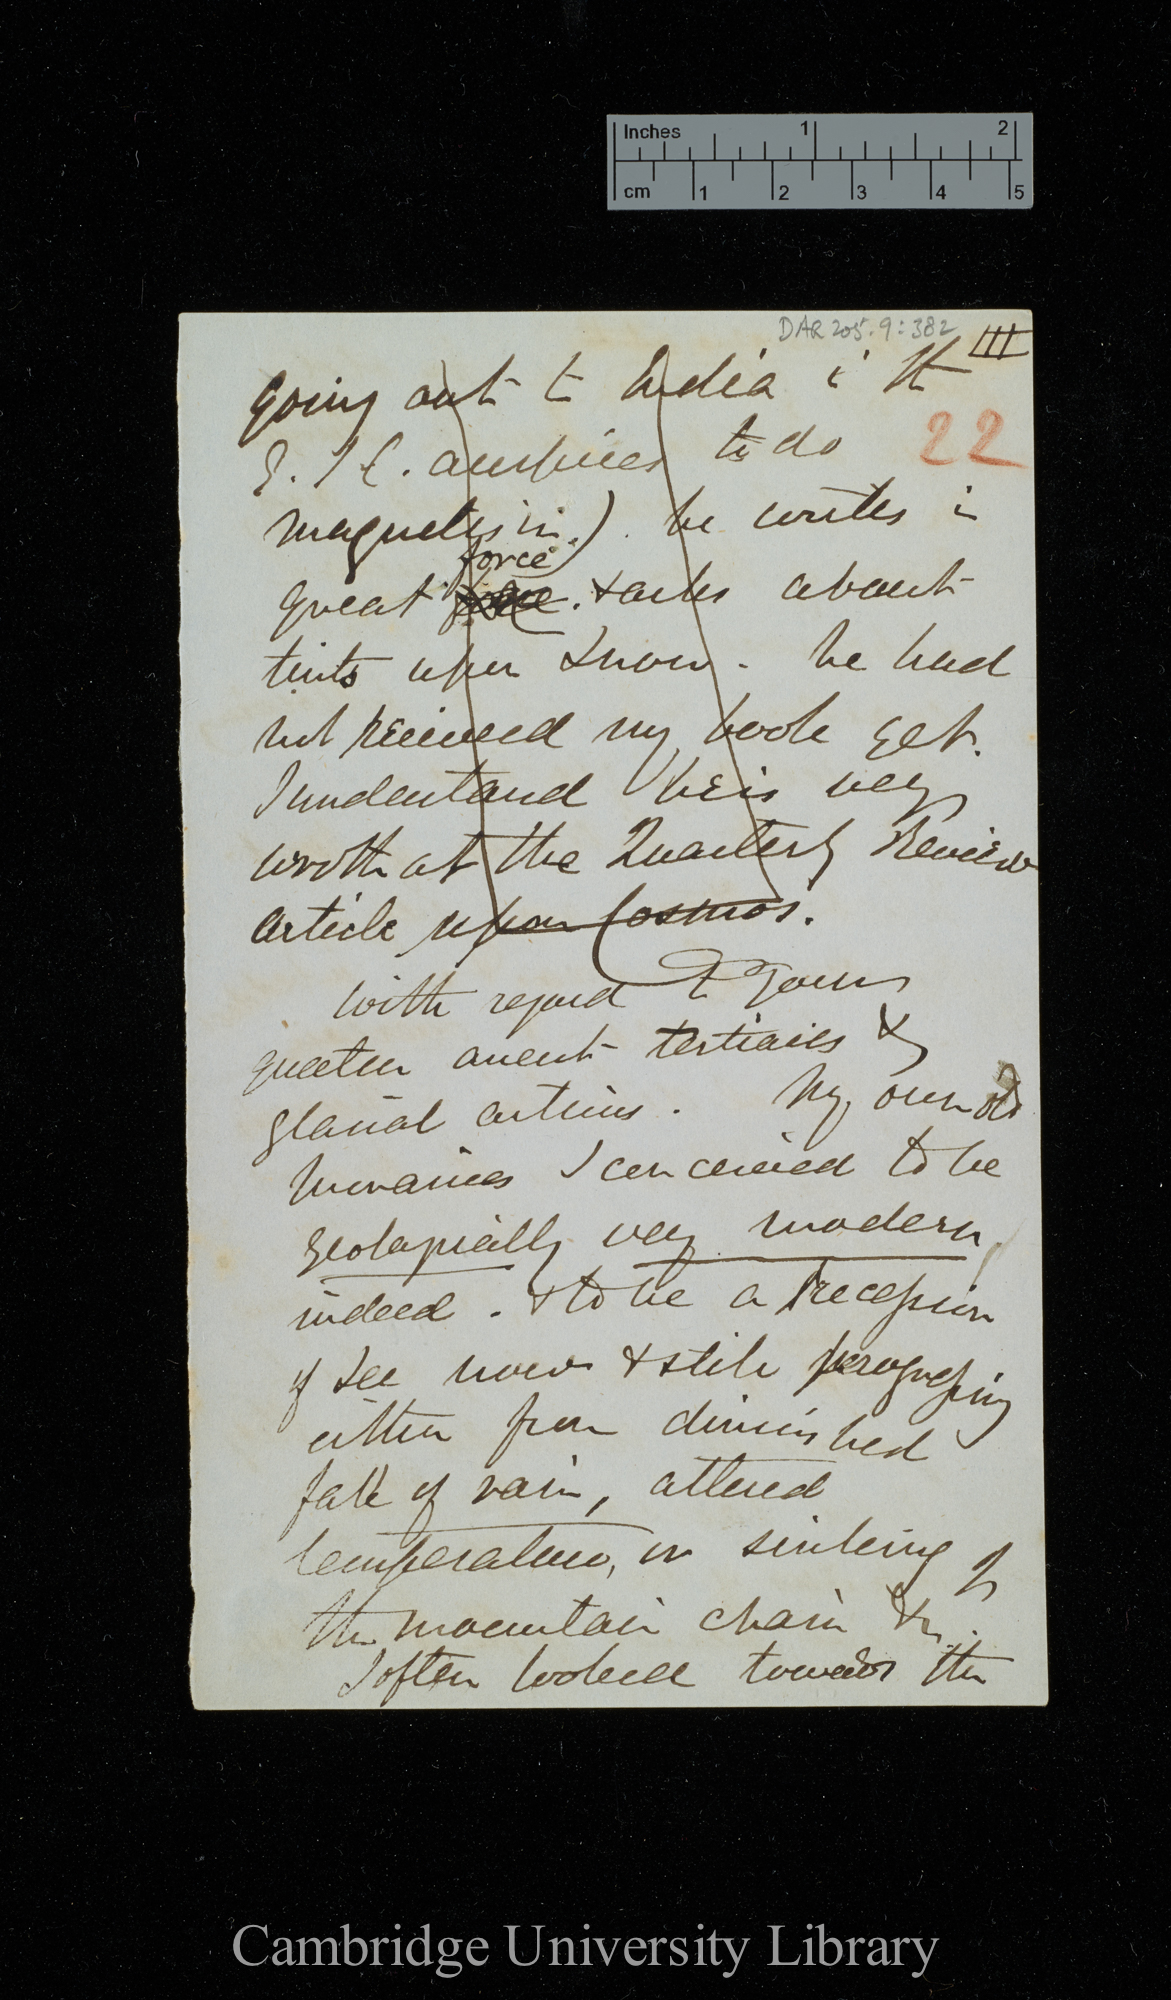 Inches 1 2
cm 1 2 3 4 5
DAR 205.9:382
III
going out to India i the
22
E. I C. auspices to do
magnetism.). he writes in
great force. & asks about
tints upon snow. he had
not received my book yet.
I understand he is very
wroth at the Quarterly Review
article upon Cosmos.
With regard to Your
queries anent tertiaries &
glacial actions. My own old
moraines I conceived to be
geologically very modern,
indeed. & to be a recession
of Ice now & still progressing
either from diminished
fall of rain, altered
temperature, or sinking of
the mountain chain &c.
I often looked towards the
Cambridge University Library